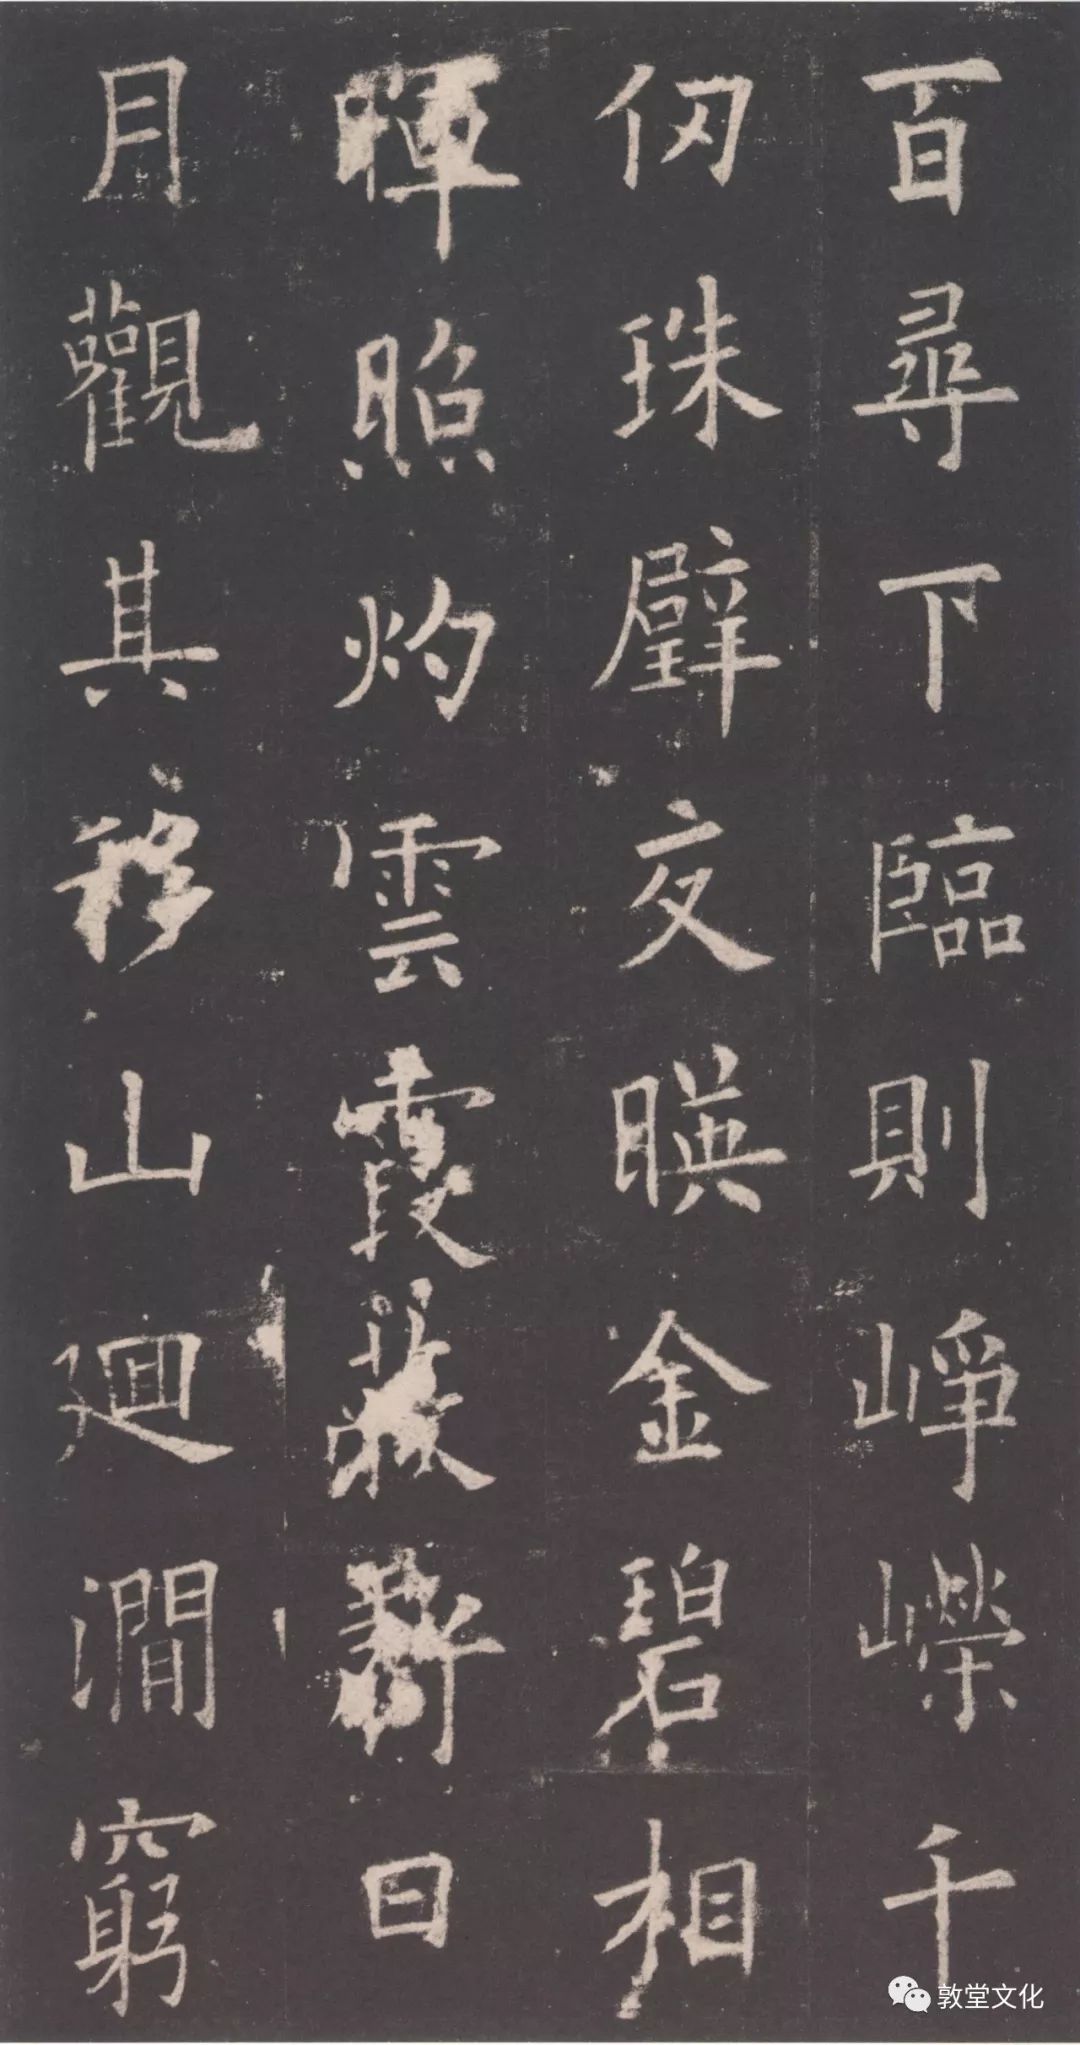 百尋下臨則崢嶸千
仞珠璧交暎金碧相
暉照灼雲霞蔽虧日
月觀其移山廻澗窮
敦堂文化